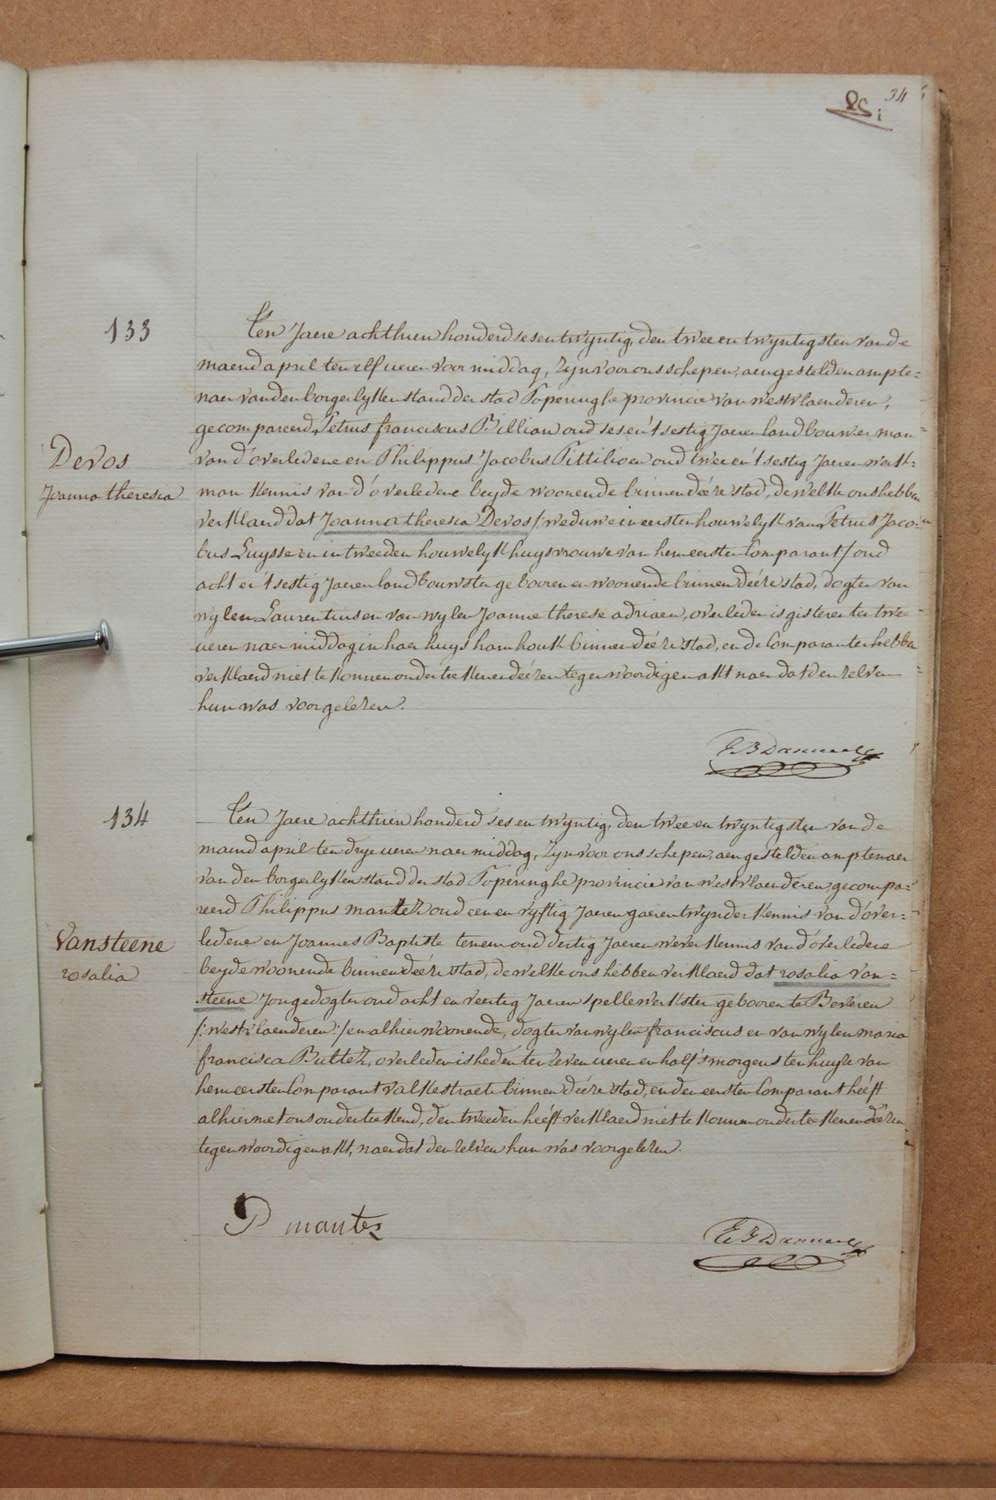 34
133
Ten Jaere achthien honderd ses en twyntig, den twee en twyntigsten van de
maend april ten elf ueren voor middag, Zyn voor ons schepen, aengestelden ampte-
naer van den borgerlyken stand der stad Poperinghe provincie van westvlaenderen,
gecompareerd Petrus franciscus Billiau oud ses en 't sestig Jaeren landbouwer man
Devos
van d'overledene en Philippus Jacobus Pittilioen oud twee en 't sestig Jaeren werk-
Joanna theresia
man kennis van d'overledene beyde woonende binnen dééze stad, dewelke ons hebben
verklaerd dat Joanna theresia Devos /weduwe in eersten houwelyk van Petrus Jaco-
bus Luyssen en in tweeden houwelyk huysvrouwe van hem eersten Comparant/ oud
acht en 't sestig Jaeren landbouwster gebooren en woonende binnen dééze stad, dogter van
wylen Laurentius en van wylen Joanne therese adriaen, overleden is gisteren ten twee
ueren naer middag in haer huys hamhouk binnen dééze stad, en de Comparanten hebben
verklaerd niet te konnen onderteekenen déézen tegenwoordigen akt naer dat den zelven
hun was voorgelezen.
134
Ten Jaere achthien honderd ses en twyntig, den twee en twyntigsten van de
maend april ten drye ueren naer middag, Zyn voor ons schepen, aengestelden amptenaer
van den borgerlyken stand der stad Poperinghe provincie van westvlaenderen gecompa-
reerd Philippus mantez oud een en vyftig Jaeren gaerentwynder kennis van d'over-
Vansteene
ledene en Joannes Baptiste tenem oud dertig Jaeren wever kennis van d'overledene
rosalia
beyde woonende binnen dééze stad, dewelke ons hebben verklaerd dat rosalia van-
steene Jongedogter oud acht en veertig Jaeren spellewerkster gebooren te Beveren
/:westvlaenderen:/ en alhier woonende, dogter van wylen franciscus en van wylen maria
francisca Buttez, overleden is heden ten zeven ueren en half 's morgens ten huyse van
hem eersten Comparant valkestraete binnen dééze stad, en den eersten Comparant heéft
alhier met ons onderteekend, den tweeden heéft verklaerd niet te konnen onderteekenen déézen
tegenwoordigen akt, naer dat den zelven hun was voorgelezen.
P mantez